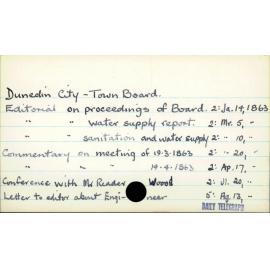 Dunedin City - Town Board.
Editorial on proceedings of Board. 2: Ja. 14, 1863
" " water supply report. 2: Mr. 5, "
" " sanitation and water supply 2: " 10, "
Commentary on meeting of 19.3.1863 2: " 20, "
" " " 14.4.1863 2: Ap. 17, "
Conference with Mr Reader Wood 2: Jl. 20, "
Letter to editor about Engineer 5: Ag. 13, "
DAILY TELEGRAPH